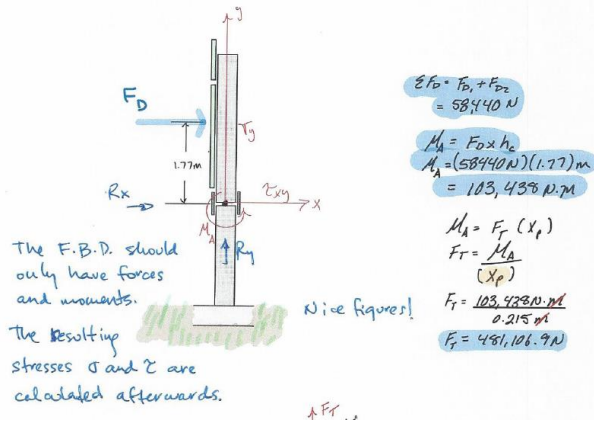 y
F_D
σy
1.77m
τxy
Rx
x
M_A
Ry
The F.B.D. should
only have forces
and moments.
The resulting
stresses σ and τ are
calculated afterwards.
Nice figures!
ΣF_D = F_D1 + F_D2
= 58,440 N
M_A = F_D x h_c
M_A = (58440N)(1.77)m
= 103,438 N.m
M_A = F_T (X_P)
F_T = M_A
(X_P)
F_T = 103,438 N.m
0.215 m
F_T = 481,106.9 N
F_T